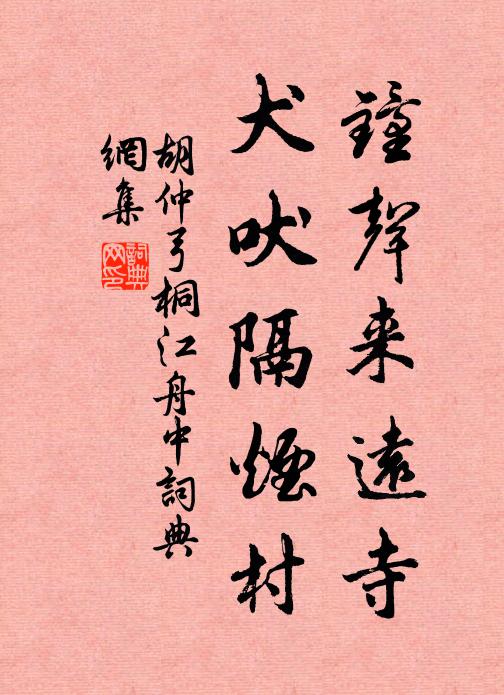 鐘聲来遠寺
犬吠隔煙村
胡仲弓桐江舟中詞典
網集
詞典
网印